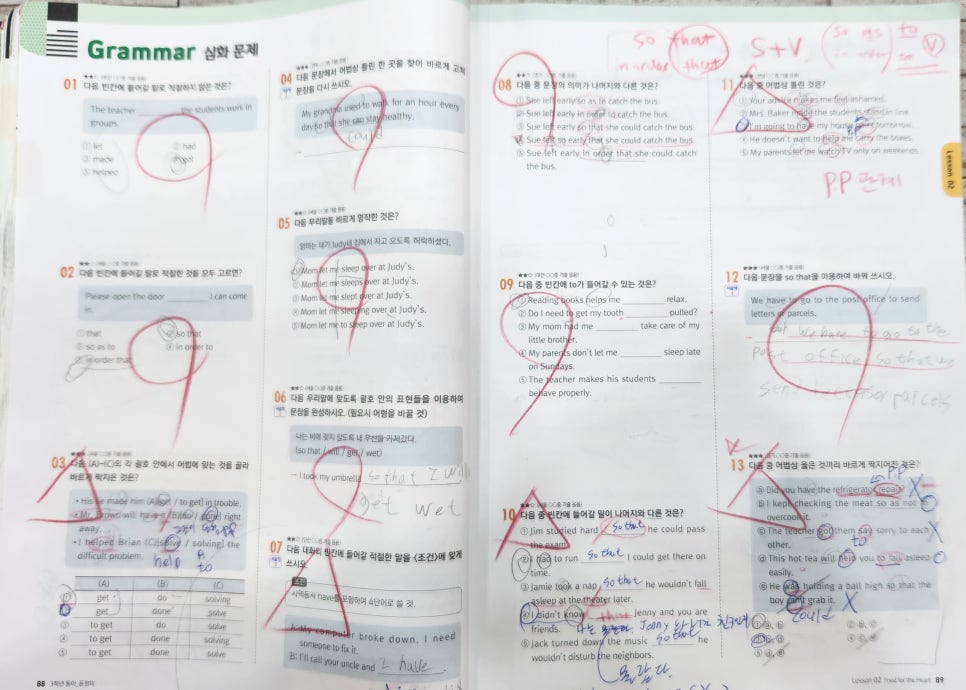 Grammar 심화 문제
01 다음 빈칸에 들어갈 말로 적절하지 않은 것은?
The teacher ______ the students work in
groups.
① let ② had
③ made ④ got
⑤ helped
02 다음 빈칸에 들어갈 말로 적절한 것을 모두 고르면?
Please open the door ______ I can come
in.
① that ② so that
③ so as to ④ in order to
⑤ in order that
03 다음 (A)~(C)의 각 괄호 안에서 어법에 맞는 것을 골라
바르게 짝지은 것은?
away.
difficult problem.
help to
(A) (B) (C)
① get do solving
② get done solve
③ to get do solve
④ to get done solving
⑤ to get done solve
88 3학년 동아_윤정미
04 다음 문장에서 어법상 틀린 한 곳을 찾아 바르게 고쳐
문장을 다시 쓰시오.
My grandpa used to walk for an hour every
day so that she can stay healthy.
could
05 다음 우리말을 바르게 영작한 것은?
엄마는 내가 Judy네 집에서 자고 오도록 허락하셨다.
① Mom let me sleep over at Judy's.
② Mom let me sleeps over at Judy's.
③ Mom let me slept over at Judy's.
④ Mom let me sleeping over at Judy's.
⑤ Mom let me to sleep over at Judy's.
06 다음 우리말에 맞도록 괄호 안의 표현들을 이용하여
문장을 완성하시오. (필요시 어형을 바꿀 것)
나는 비에 젖지 않도록 내 우산을 가져갔다.
(so that / will / get / wet)
→ I took my umbrella so that I will
get wet
07 다음 대화의 빈칸에 들어갈 적절한 말을 <조건>에 맞게
쓰시오.
조건
사역동사 have를 포함하여 4단어로 쓸 것.
A: My computer broke down. I need
someone to fix it.
B: I'll call your uncle and I have
so that S+V. so as to
in order that in order to V
08 다음 중 문장의 의미가 나머지와 다른 것은?
① Sue left early so as to catch the bus.
② Sue left early in order to catch the bus.
③ Sue left early so that she could catch the bus.
④ Sue left so early that she could catch the bus.
⑤ Sue left early in order that she could catch
the bus.
09 다음 중 빈칸에 to가 들어갈 수 있는 것은?
① Reading books helps me ______ relax.
② Do I need to get my tooth ______ pulled?
③ My mom had me ______ take care of my
little brother.
④ My parents don't let me ______ sleep late
on Sundays.
⑤ The teacher makes his students ______
behave properly.
10 다음 중 빈칸에 들어갈 말이 나머지와 다른 것은?
① Jim studied hard so that he could pass
the exam.
② I had to run so that I could get there on
time.
③ Jamie took a nap so that he wouldn't fall
asleep at the theater later.
④ I didn't know that Jenny and you are
friends.
⑤ Jack turned down the music so that he
wouldn't disturb the neighbors.
11 다음 중 어법상 틀린 것은?
① Your advice makes me feel ashamed.
② Mrs. Baker made the students stand in line.
③ I'm going to have my house paint tomorrow.
④ He doesn't want to help me carry the boxes.
⑤ My parents let me watch TV only on weekends.
PP 관계
Lesson 02
12 다음 문장을 so that을 이용하여 바꿔 쓰시오.
We have to go to the post office to send
letters or parcels.
→ we have to go to the
post office so that we
parcels
13 다음 중 어법상 옳은 것끼리 바르게 짝지어진 것은?
PP
ⓐ Did you have the refrigerator repair?
ⓑ I kept checking the meat so as not to
overcook it.
ⓒ The teacher got them say sorry to each
other. to
ⓓ This hot tea will help you to fall asleep
easily.
ⓔ He was holding a ball high so that the
boy can't grab it.
could
① ⓐ, ⓑ
③ ⓑ, ⓓ
⑤ ⓓ, ⓔ
Lesson 02 Food for the Heart 89